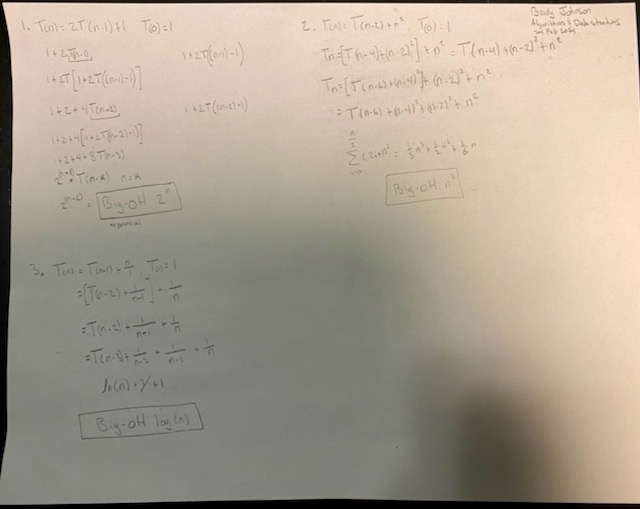 Brody Johnson
Algorithms & Data structures
24 Feb 2021
1. T(n) = 2T(n-1)+1 T(0)=1
1+2T(n-1)
1+2T((n-1)-1)
1+2T[1+2T((n-1)-1)]
1+2+4T(n-2)
1+2T((n-2)-1)
1+2+4[1+2T(n-2)-1)]
1+2+4+8T(n-3)
T(n-k) n=k
= Big-OH 2ⁿ
exponential
2. T(n) = T(n-2)+n², T(0)=1
Tn=[T(n-4)+(n-2)²]+n² = T(n-4)+(n-2)²+n²
Tn=[T(n-6)+(n-4)²]+(n-2)²+n²
= T(n-6)+(n-4)²+(n-2)²+n²
= ⅓n³+½n²+⅙n
Big-OH n³
3. T(n) = T(n-1) + , T(0)=1
=[T(n-2)+1/n-1]+1/n
=T(n-2)+1/n-1+1/n
=T(n-3)+1/n-2+1/n-1+1/n
ln(n)+γ+1
Big-OH log(n)